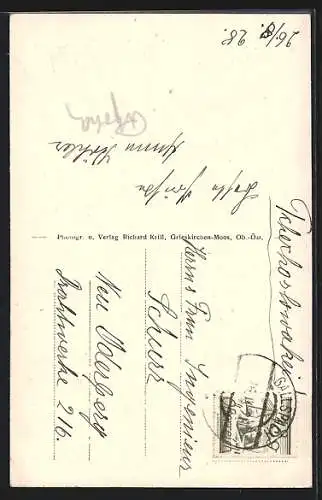 26/8. 28.
Beste Grüße
Photogr. u. Verlag Richard Krill, Grieskirchen-Moos, Ob.-Öst.
Tschechoslowakei!
Herrn Frau Ingenieur
Schurz
Neu Oderberg
Drahtwerke 216.